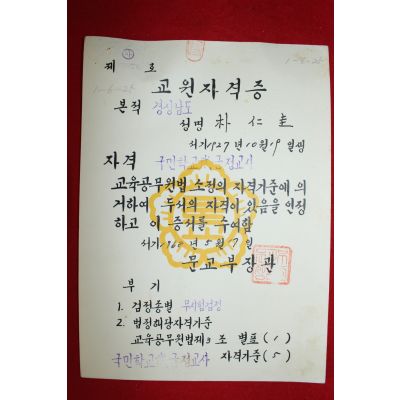 제 호
교원자격증
본적 경상남도
성명 朴仁圭
서기1927년10월19일생
자격 국민학교 교사
교육공무원법 소정의 자격기준에 의
거하여 두서의 자격이 있음을 인정
하고 이 증서를 수여함
서기196 년 5월 7일
문교부장관
부기
1. 검정종별 무시험검정
2. 법정해당자격기준
교육공무원법제3조 별표(1)
국민학교 교사 자격기준(5)